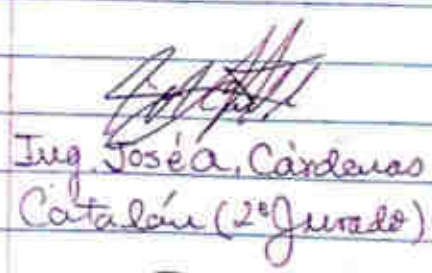 Ing. José A. Cárdenas
Catalán (2° Jurado)